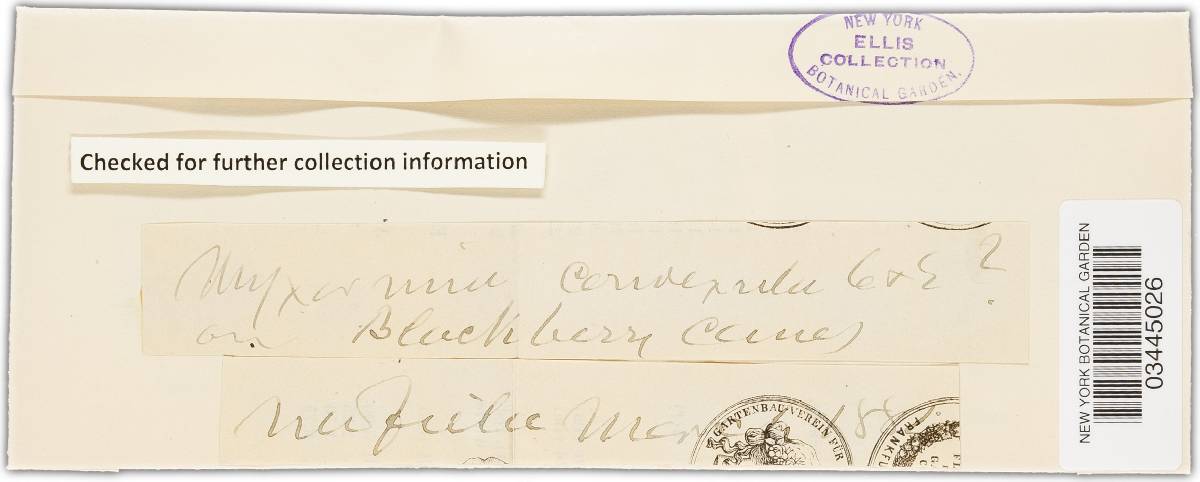 NEW YORK
ELLIS
COLLECTION
BOTANICAL GARDEN.
Checked for further collection information
Myxormia convexula C & E ?
on Blackberry canes
Newfield Mar
GARTENBAU-VEREIN FÜR
FRANKFU
NEW YORK BOTANICAL GARDEN
03445026